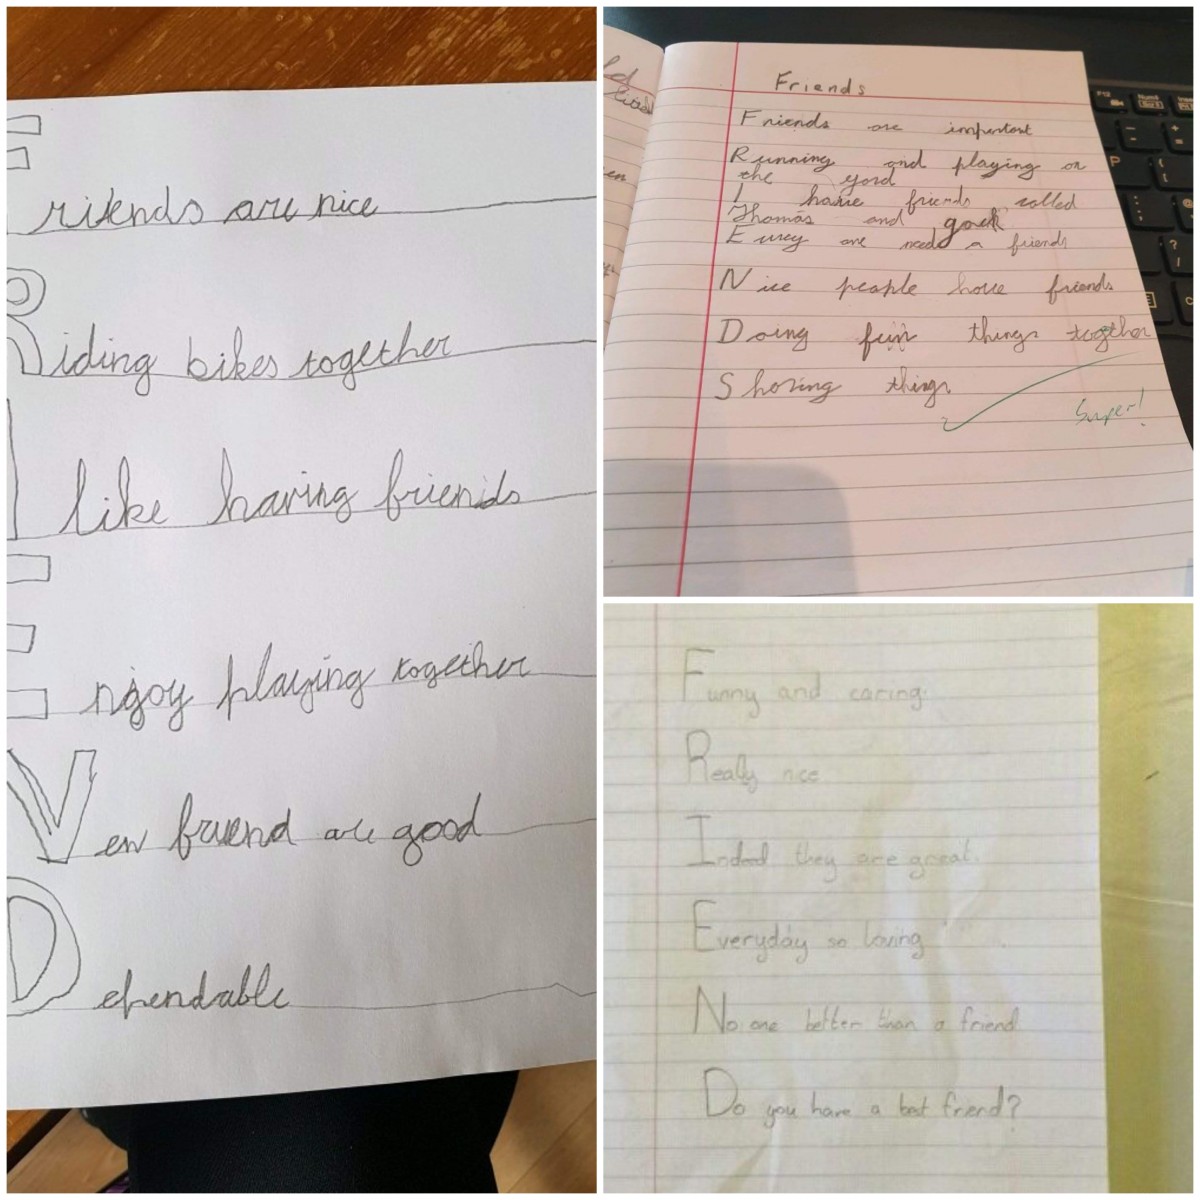 Friends are nice
Riding bikes together
I like having friends
Enjoy playing together
New friend are good
Dependable
Friends
Friends are important
Running and playing on
the yard
I have friends called
Thomas and
Every one needs a friends
Nice people have friends
Doing fun things together
Sharing things
Super!
Funny and caring.
Really nice
Indeed they are great.
Everyday so loving
No one better than a friend
Do you have a best friend?